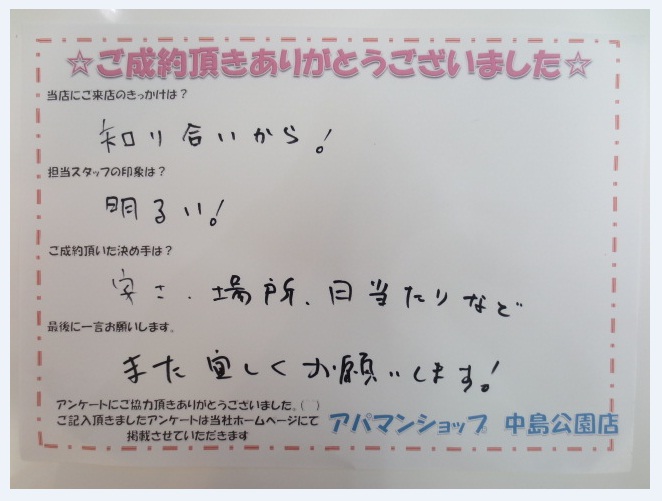 ☆ご成約頂きありがとうございました☆
当店にご来店のきっかけは？
知り合いから！
担当スタッフの印象は？
明るい！
ご成約頂いた決め手は？
安さ、場所、日当たりなど
最後に一言お願いします。
また宜しくお願いします！
アンケートにご協力頂きありがとうございました。(  )
ご記入頂きましたアンケートは当社ホームページにて
掲載させていただきます
アパマンショップ 中島公園店